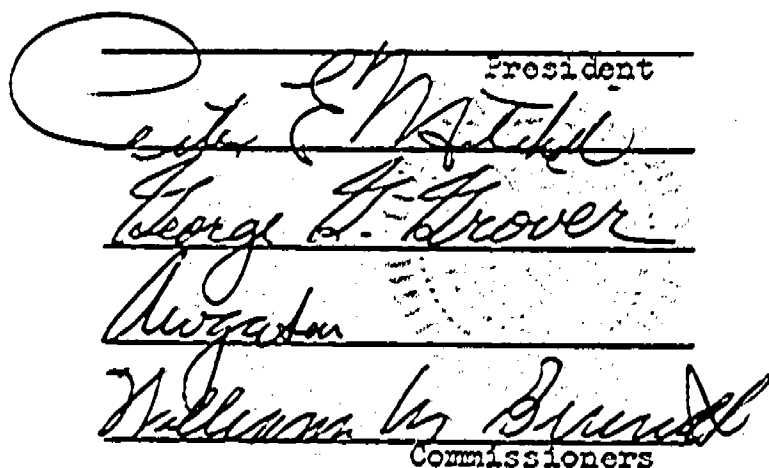 President
Peter E. Mitchell
George G. Grover
William M. Bennett
Commissioners